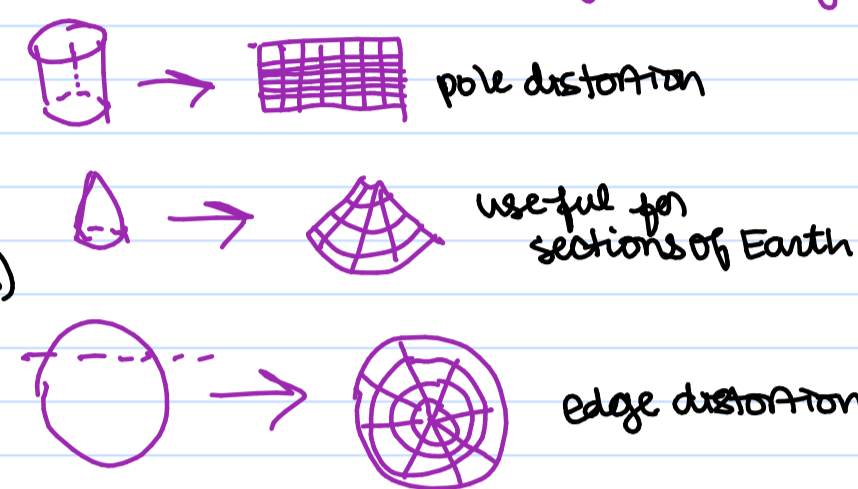 pole distortion
useful for
sections of Earth
edge distortion